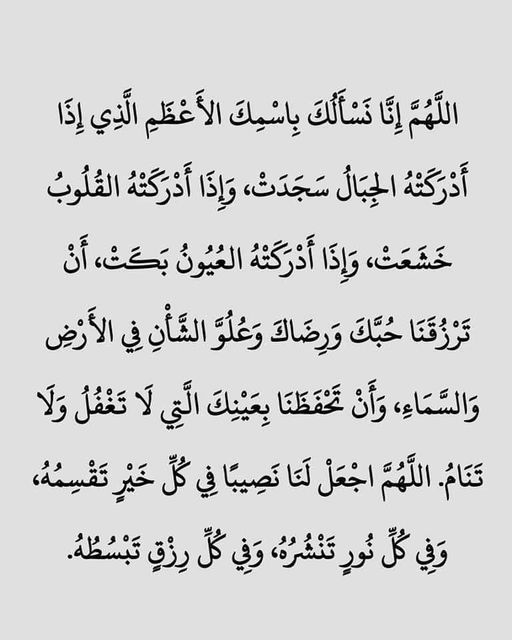 اللَّهُمَّ إِنَّا نَسْأَلُكَ بِاسْمِكَ الأَعْظَمِ الَّذِي إِذَا
أَدْرَكَتْهُ الجِبَالُ سَجَدَتْ، وَإِذَا أَدْرَكَتْهُ القُلُوبُ
خَشَعَتْ، وَإِذَا أَدْرَكَتْهُ العُيُونُ بَكَتْ، أَنْ
تَرْزُقَنَا حُبَّكَ وَرِضَاكَ وَعُلُوَّ الشَّأْنِ فِي الأَرْضِ
وَالسَّمَاءِ، وَأَنْ تَحْفَظَنَا بِعَيْنِكَ الَّتِي لَا تَغْفُلُ وَلَا
تَنَامُ. اللَّهُمَّ اجْعَلْ لَنَا نَصِيبًا فِي كُلِّ خَيْرٍ تَقْسِمُهُ،
وَفِي كُلِّ نُورٍ تَنْشُرُهُ، وَفِي كُلِّ رِزْقٍ تَبْسُطُهُ.